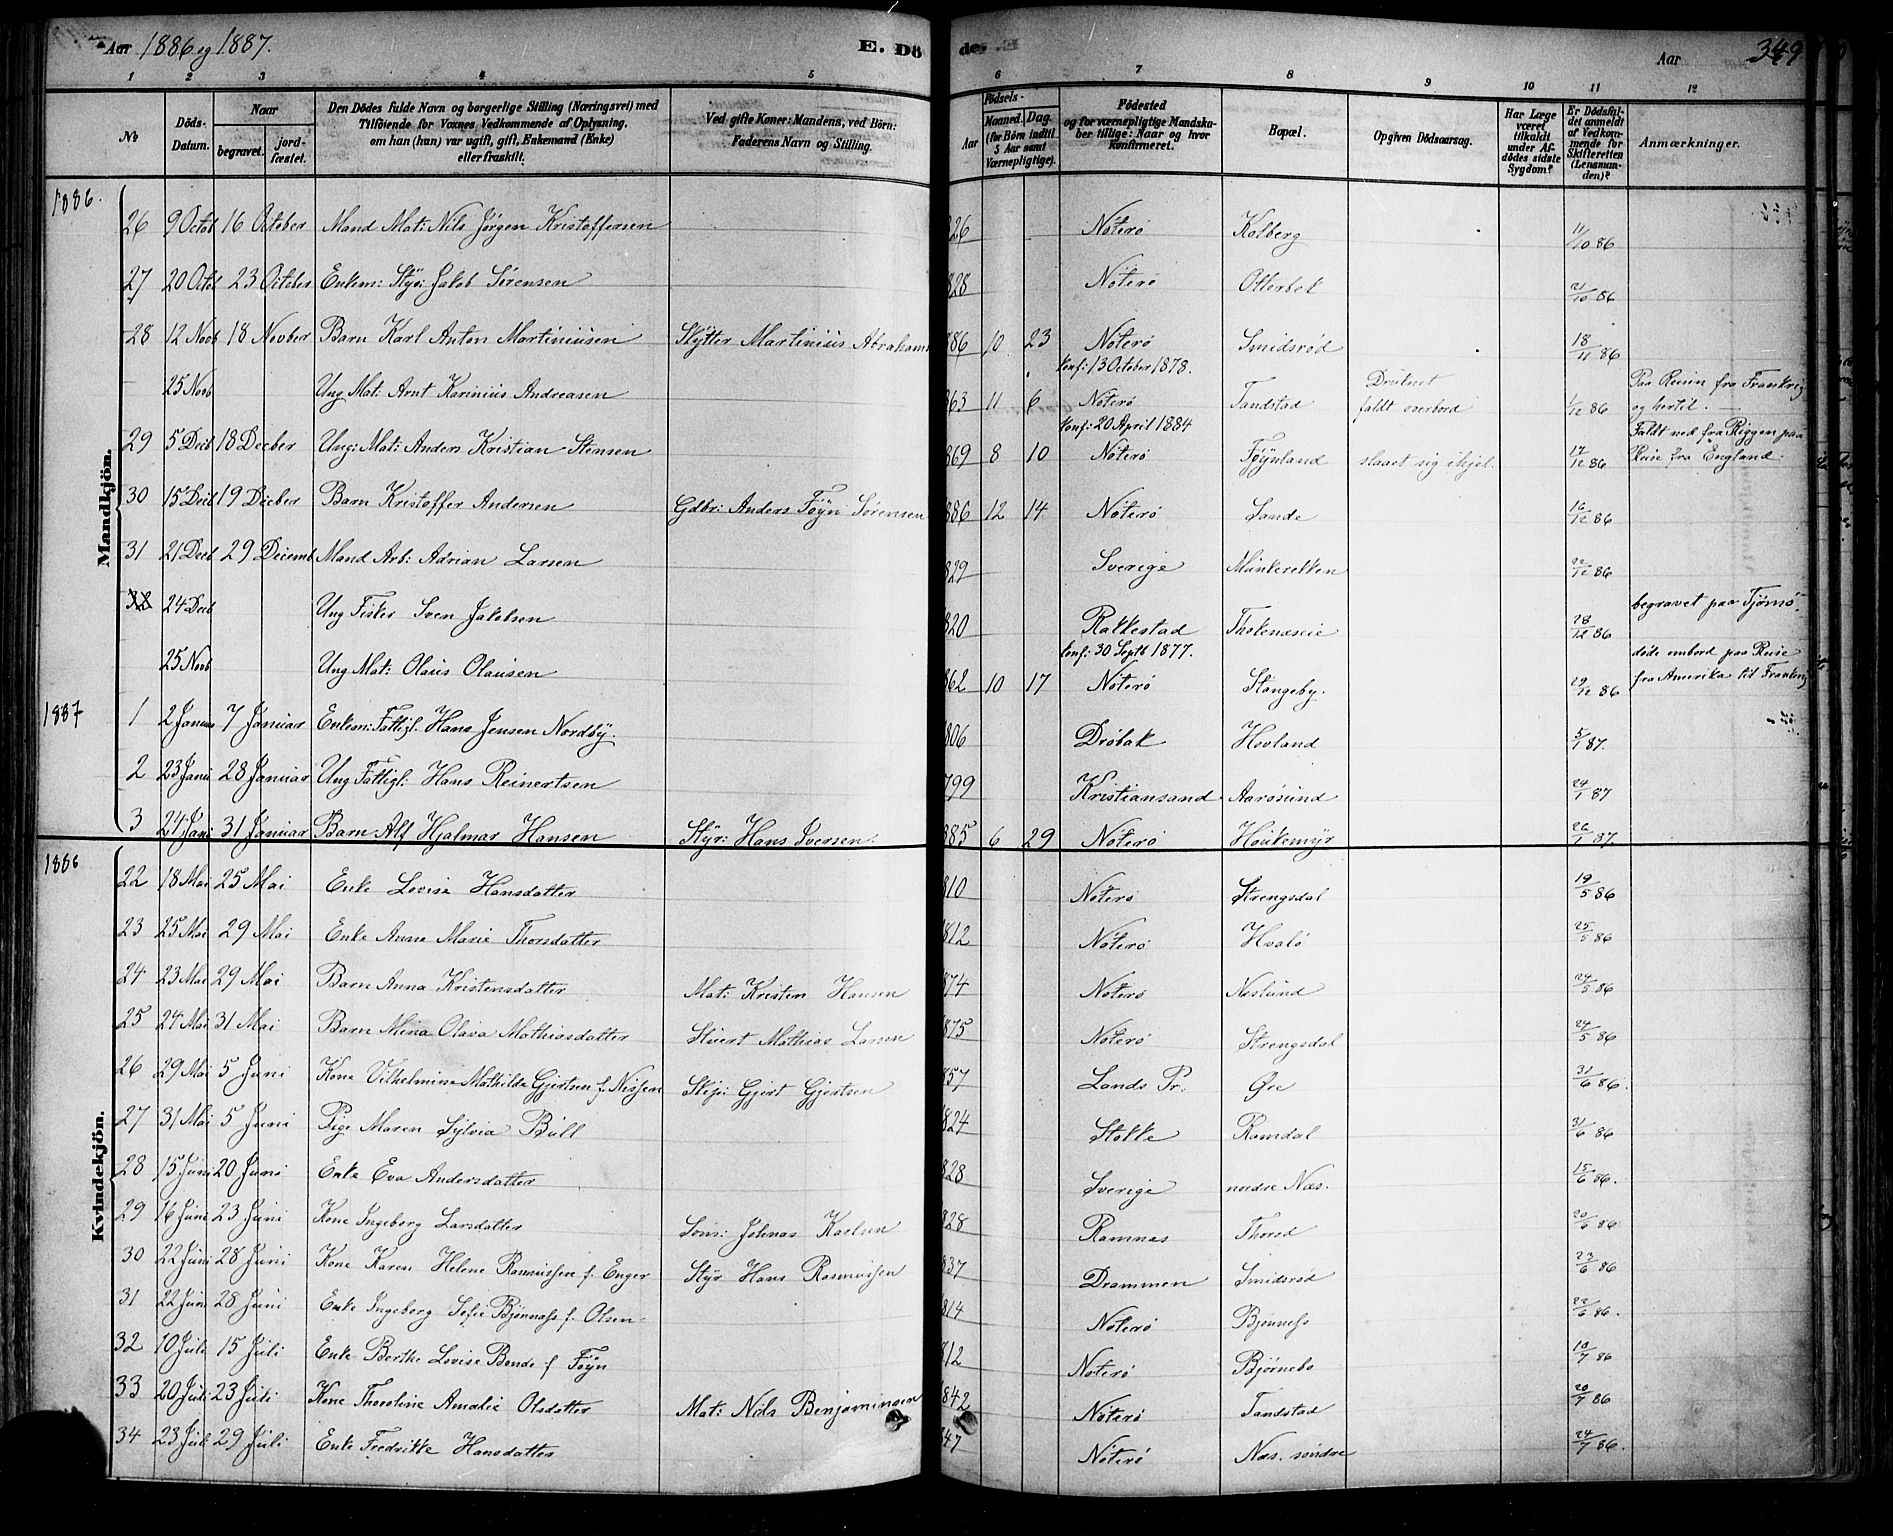 Aar 1886 og 1887.
E. Dö
de.
Aar
349
1 2 3 4 5 6 7 8 9 10 11 12
No
Döds-Datum.
Naar
begravet.
jord-fæstet.
Den Dödes fulde Navn og borgerlige Stilling (Næringsvei) med
Tilföiende for Voxnes Vedkommende af Oplysning,
om han (hun) var ugift, gift, Enkemand (Enke)
eller fraskilt.
Ved gifte Koner: Mandens, ved Börn:
Faderens Navn og Stilling.
Födsels-
Aar
Maaned.
Dag.
(for Börn indtil
5 Aar samt
Værnepligtige).
Födested
og for værnepligtige Mandska-
ber tillige: Naar og hvor
Konfirmeret.
Bopæl.
Opgiven Dödsaarsag.
Har Læge
været
tilkaldt
under Af-
dödes sidste
Sygdom?
Er Dödsfal-
det anmeldt
af Vedkom-
mende for
Skifteretten
(Lensman-
den)?
Anmærkninger.
1886.
Mandkjön.
26 9 Octob 16 October Mand Mat: Nils Jørgen Kristoffersen 826 Nöterö Kolberg 11/10 86
27 20 Octob 23 October Enkem: Styr: Jakob Sørensen 828 Nöterö Ollerbek 21/10 86
28 12 Novb 18 Novber Barn Karl Anton Martiniusen Skytter Martinius Abrahams 886 10 23 Nöterö Smidsrød 18/11 86
Konf: 13 October 1878.
25 Novb Ung Mat: Arnt Karinius Andreasen 863 11 6 Nöterö Tandstad Druknet faldt overbord 1/12 86 Paa Reisen fra Frankrig og hertil.
Konf: 20 April 1884
29 5 Decb 18 Decber Ung: Mat: Anders Kristian Stensen 869 8 10 Nöterö Føynland slaaet sig ihjel. 17/12 86 Faldt ned fra Riggen paa Reise fra England.
30 15 Decb 19 Decber Barn Kristoffer Andersen Gdbr: Anders Føyn Sørensen 886 12 14 Nöterö Sande 16/12 86
31 21 Decb 29 Decemb Mand Arb: Adrian Larsen 829 Sverige Munkerekken 22/12 86
32 24 Decb Ung Fisker Sven Jakobsen 820 Rakkestad 28/12 86 begravet paa Tjømø.
Konf: 30 Septb 1877.
25 Novb Ung Mat: Olaus Olausen 862 10 17 Nöterö Stangeby. 29/12 86 døde ombord paa Reise fra Amerika til Frankrig
1887 1 2 Januar 7 Januar Enkem: Fattigl. Hans Jensen Nordby. 806 Drøbak Hovland 5/1 87.
2 23 Janu 28 Januar Ung Fattigl: Hans Reinertsen 799 Kristiansand Aarøsund 24/1 87
3 24 Janu 31 Januar Barn Alf Hjalmar Hansen Styr: Hans Iversen. 885 6 29 Nöterö Houkemyr 26/1 87.
1886
Kvindekjön.
22 18 Mai 25 Mai Enke Lovise Hansdatter 810 Nöterö Strengsdal 19/5 86
23 25 Mai 29 Mai Enke Anne Marie Thorsdatter 812 Nöterö Hvalø 25/5 86
24 23 Mai 29 Mai Barn Anna Kristensdatter Mat: Kristen Hansen 874 Nöterö Neslund 24/5 86
25 24 Mai 31 Mai Barn Mina Olava Mathiasdatter Stuert Mathias Larsen 875 Nöterö Strengsdal 24/5 86
26 29 Mai 5 Juni Kone Vilhelmine Mathilde Gjertsen f. Nissen Skip: Gjert Gjertsen 857 Lands Pr. Øre 31/6 86.
27 31 Mai 5 Juni Pige Maren Sylvia Bull 824 Stokke Ramdal 31/6 86
28 15 Juni 20 Juni Enke Eva Andersdatter 828 Sverige nordre Næs. 15/6 86.
29 16 Juni 23 Juni Kone Ingeborg Larsdatter Søm: Johnas Karlsen 828 Ramnes Thorød 20/6 86
30 22 Juni 28 Juni Kone Karen Helene Rasmussen f. Enger Styr Hans Rasmussen 837 Drammen Smidsrød 23/6 86
31 22 Juni 28 Juni Enke Ingeborg Sofie Bjønness f. Olsen 814 Nöterö Bjønness 22/6 86.
32 10 Juli 15 Juli Enke Berthe Lovise Bende f Føyn 812 Nöterö Bjørnebo 10/7 86
33 20 Juli 23 Juli Kone Thoroline Amalie Olsdatter Mat: Nils Benjaminsen 842 Nöterö Tandstad 20/7 86
34 23 Jul 29 Juli Enke Fredrikke Hansdatter 847 Nöterö Næs. søndre 24/7 86.